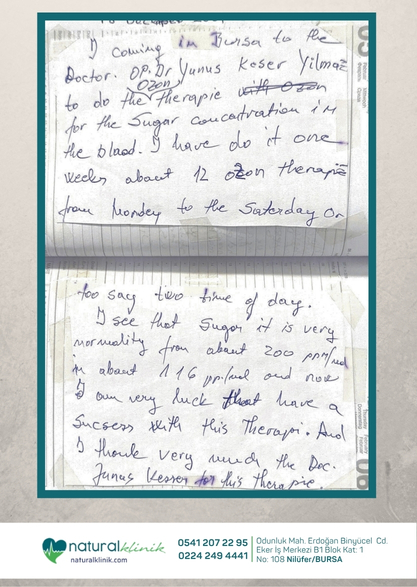 I coming in Bursa to the
Doctor. OP. Dr Yunus Keser Yilmaz
to do the Ozon therapie with Ozon
for the Sugar concantration in
the blaad. I have do it one
weeks about 12 ozon therapie
from Monday to the Saterday or
too say two time of day.
I see that Sugar it is very
normality from about 200
in about 116 and now
I am very luck that have a
Sucsess with this Therapi. And
I thank very much the Doc.
Junus Kesser for this therapie.
05
06
naturalklinik
naturalklinik.com
0541 207 22 95
0224 249 4441
Odunluk Mah. Erdoğan Binyücel Cd.
Eker İş Merkezi B1 Blok Kat: 1
No: 108 Nilüfer/BURSA